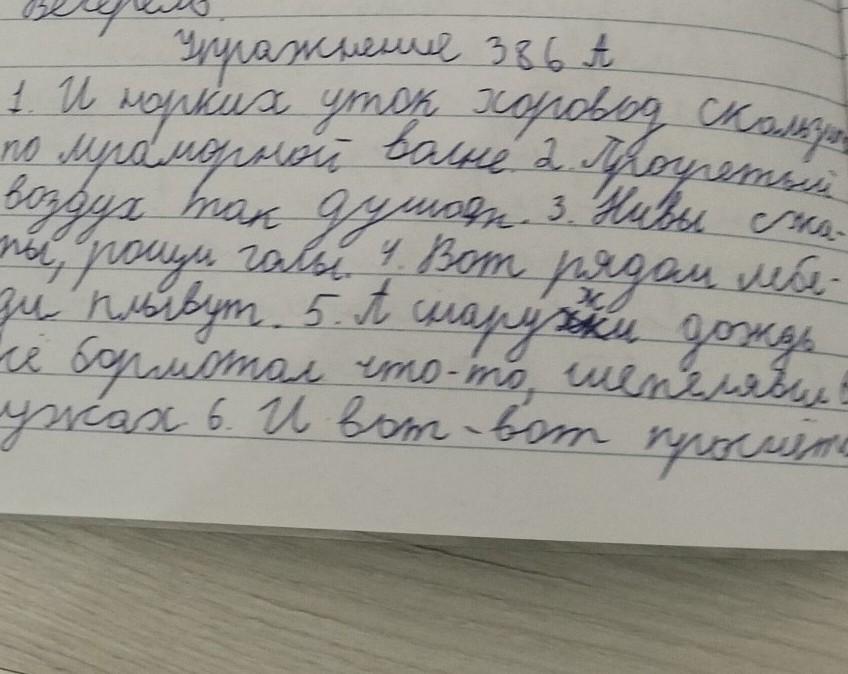 Упражнение 386 А
1. И норких уток хоровод скользит
по мраморной волне. 2. Прогретый
воздух так душон. 3. Нивы сжа-
ты, рощи голы. 4. Вот рядом лебе-
ди плывут. 5. А снаружи дождь
всё бормотал что-то, шепелявил в
лужах 6. И вот-вот